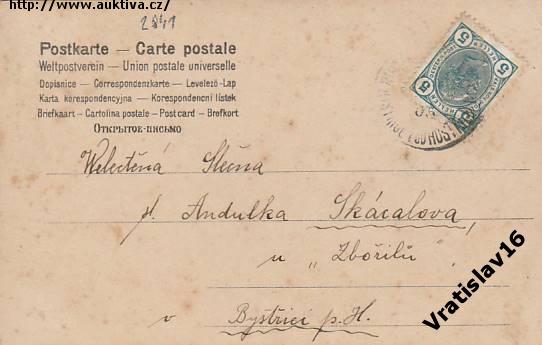 http://www.auktiva.cz/
2841
Postkarte — Carte postale
Weltpostverein — Union postale universelle
Dopisnice — Correspondenzkarte — Levelező-Lap
Karta korespondencyjna — Korespondencni lístek
Briefkaart — Cartolina postale — Post card — Brefkort
Открытое-письмо
5 HELLER 5
BYSTŘICE POD HOST
Weletěná Slečna
sl. Andulka Skácalova,
u „Zbořilů"
v Bystřici p. H.
Vratislav16